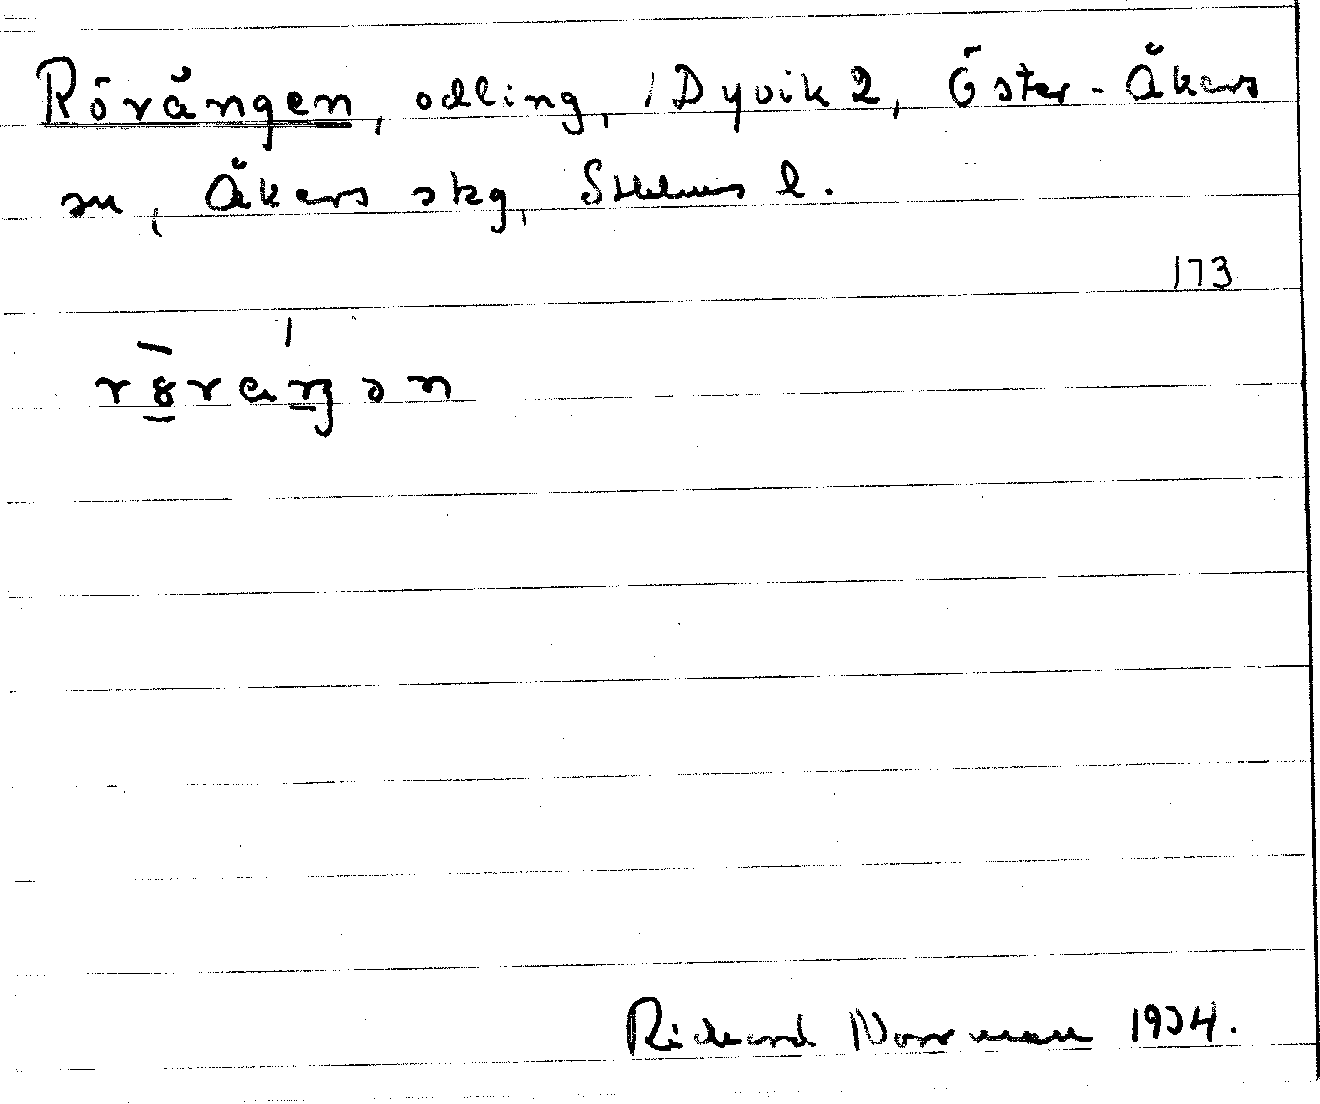 Rörängen, odling, Dyvik 2, Öster-Åkers
sn, Åkers skg, Sthlms l.
173
Richard Norrman 1934.